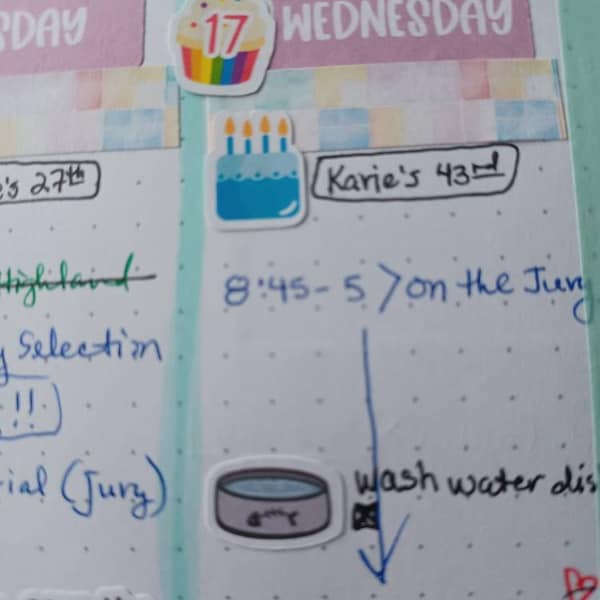 SDAY
17
WEDNESDAY
's 27th
Karie's 43rd
Highland
8:45-5 > on the Jury
Selection
!!
ial (Jury)
wash water dis